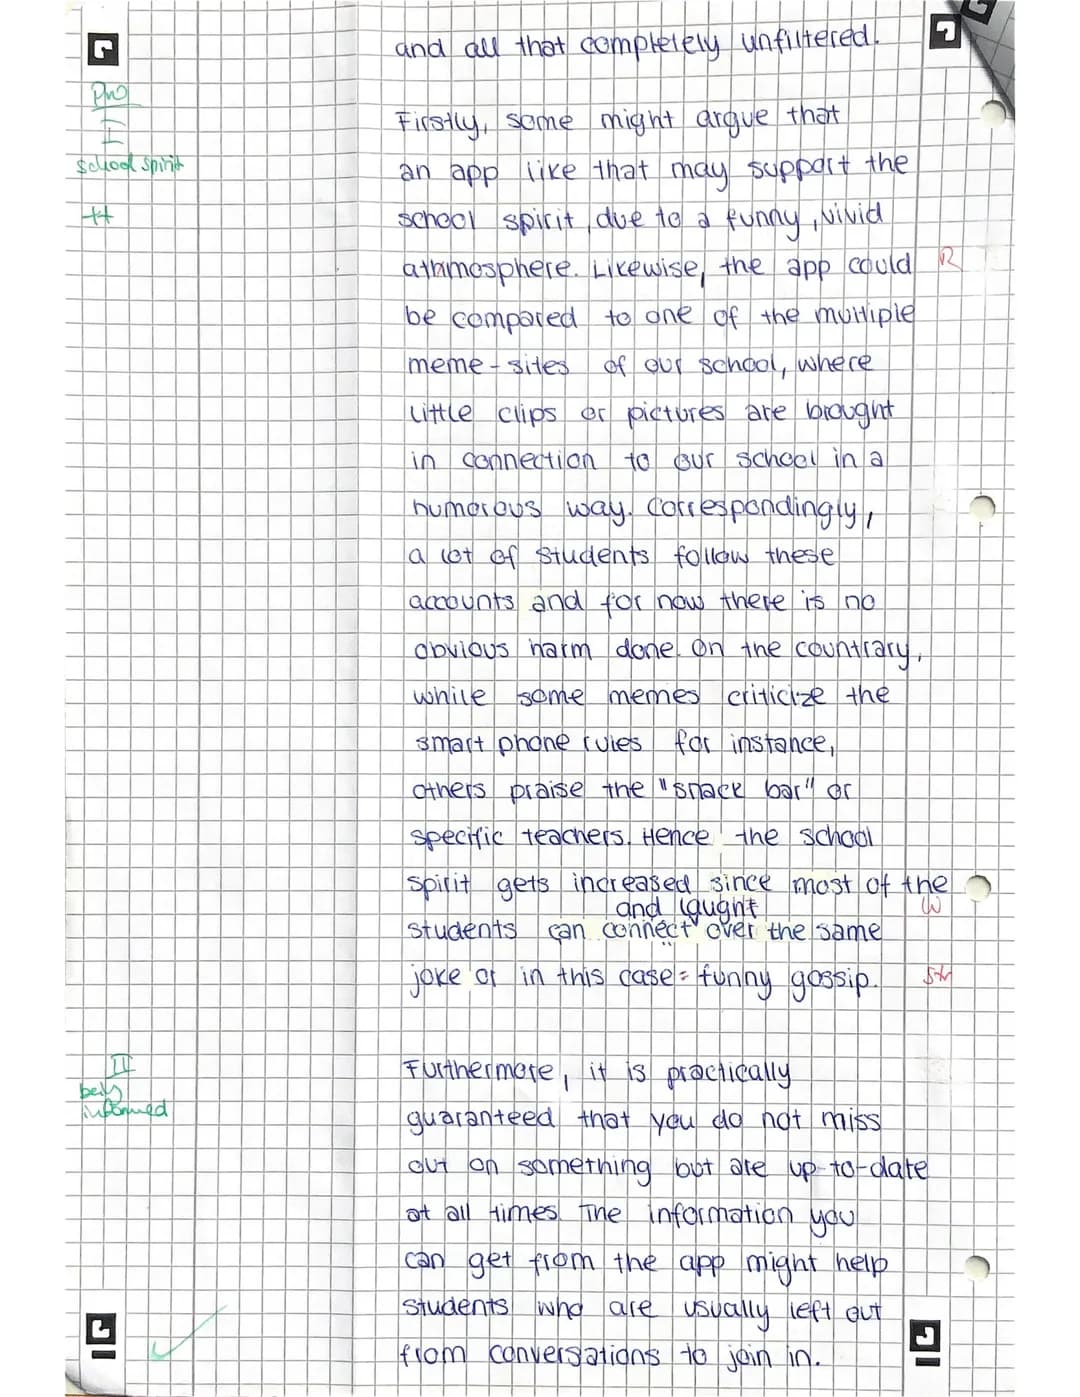 and all that completely unfiltered.
Pro
I
school spirit
++
Firstly, some might argue that
an app like that may support the
school spirit, due to a funny, vivid
athmosphere. Likewise, the app could R
be compared to one of the multiple
meme-sites of our school, where
little clips or pictures are brought
in connection to our school in a
humorous way. Correspondingly,
a lot of students follow these
accounts and for now there is no
obvious harm done. On the countrary,
while some memes criticize the
smart phone rules for instance,
others praise the "snack bar" or
specific teachers. Hence the school
spirit gets increased since most of the
and laught W
students can connect over the same
joke or in this case: funny gossip. Str
II
being
informed
Furthermore, it is practically
guaranteed that you do not miss
out on something but are up-to-date
at all times. The information you
can get from the app might help
students who are usually left out
from conversations to join in.